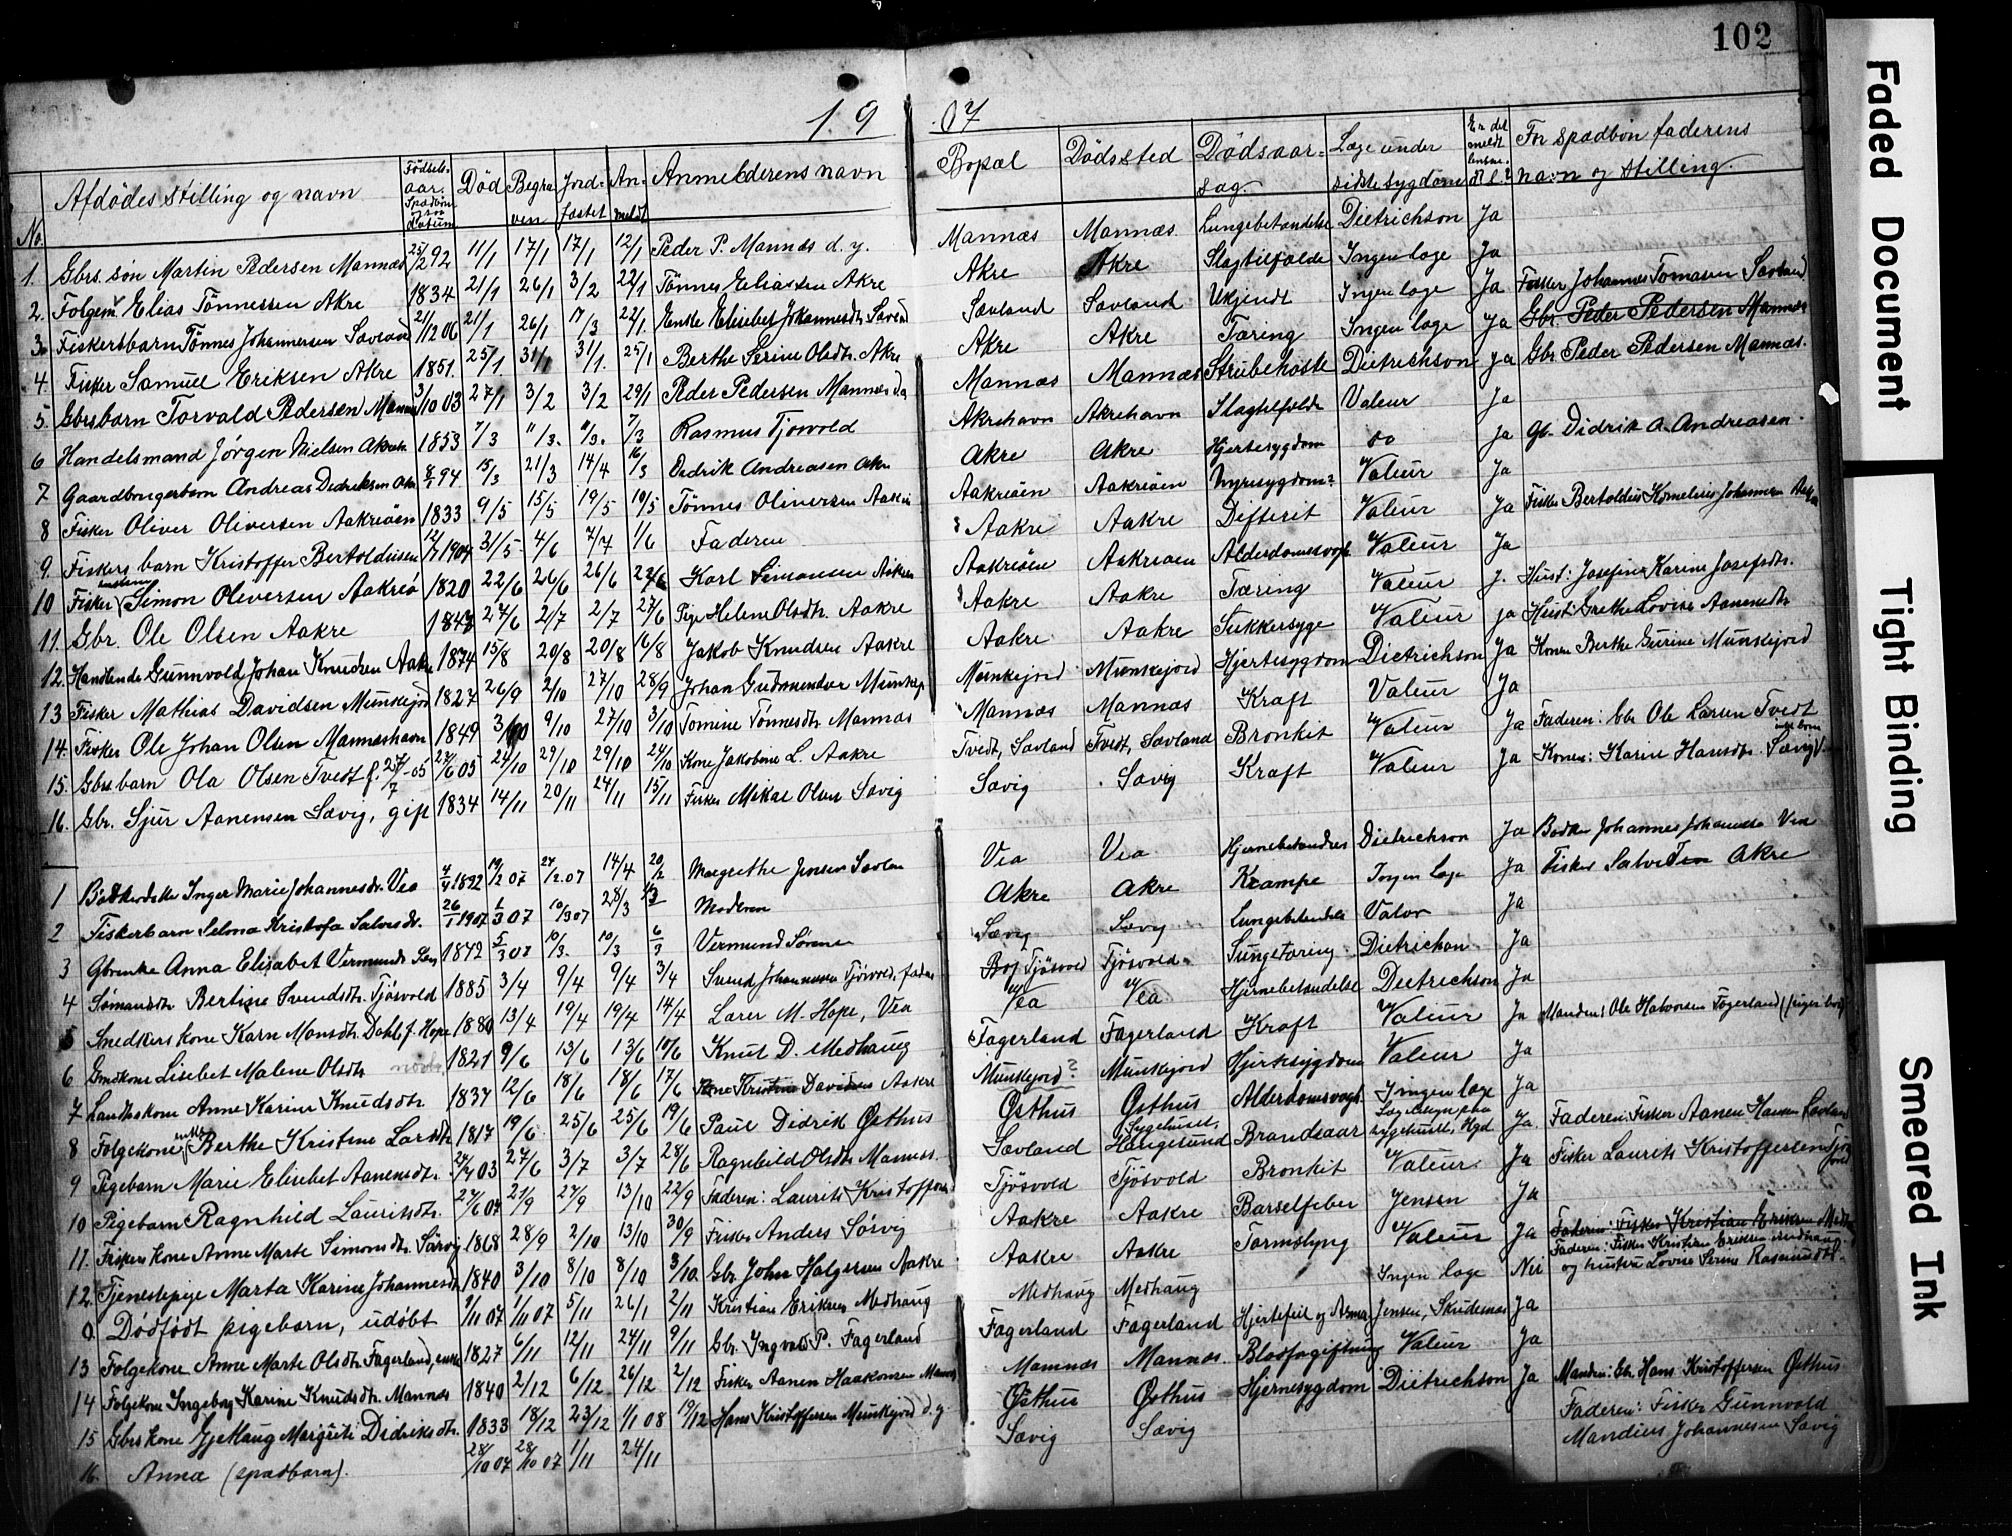 102
19 07
No. Afdødes stilling og navn Fødselsaar. Spædbørn ogsaa datum Død Begraven Jordfæstet Anmeldt Anmelderens navn Bopæl Dødssted Dødsaarsag Læge under sidste sygdom Er det meldt lensm. el. s.? For spædbørn faderens navn og stilling.
1. Gbrs. søn Martin Pedersen Mannæs 25/2 92 11/1 17/1 17/1 12/1 Peder P. Mannæs d. y. Mannæs Mannæs Lungebetændelse Dietrichson Ja
2. Folgem. Elias Tønnessen Akre 1834 21/1 26/1 3/2 22/1 Tønnes Eliassen Akre Akre Akre Slagtilfælde Ingen læge Ja
3. Fiskersbarn Tønnes Johannessen Sævland 21/12 06 21/1 26/1 17/3 22/1 Enke Elisebet Johannesdtr. Sævland Sævland Sævland Ukjendt Ingen læge Ja Fisker Johannes Tomasen Sævland
4. Fisker Samuel Eriksen Akre 1851. 25/1 31/1 31/1. 25/1 Berthe Serine Olsdtr. Akre Akre Akre Tæring Ingen læge Ja Gbr. Peder Pedersen Mannæs
5. Gbrsbarn Torvald Pedersen Mannæs 3/10 03 27/1 3/2 3/2 29/1 Peder Pedersen Mannæs d.æ. Mannæs Mannæs Strubehoste Dietrichson ja Gbr. Peder Pedersen Mannæs.
6 Handelsmand Jørgen Nielsen Akreh. 1853 7/3 11/3. 11/3. 7/3 Rasmus Tjøsvold Akrehavn Akrehavn Slagtilfælde Valeur Ja
7. Gaardbrugerbarn Andreas Dedriksen Akre 8/1 94 15/3 21/3 14/4 16/3 Dedrik Andreasen Akre Akre Akre Hjertesygdom do Ja Gb. Didrik A. Andreasen.
8 Fisker Oliver Oliversen Aakreøen 1833 9/5 15/5 19/5 10/5 Tønnes Oliversen Aakre Aakreøen Aakreøen Nyresygdom? Valeur Ja
9. Fiskers barn Kristoffer Bertoldiusen 12/7 1904 31/5 4/6 7/7 1/6 Faderen Aakre Aakre Difterit Valeur Ja Fisker Bertoldius Kornelius Johannesen
10 Fisker Simon Oliversen Aakreø 1820 22/6 26/6 26/6 22/6 Karl Simonsen Aakre Aakreøen Aakreøen Alderdomssvagh. Valeur Ja
11. Gbr. Ole Olsen Aakre 1847 27/6 2/7 2/7 27/6 Pige Helene Olsdtr. Aakre Aakre Aakre Tæring Valeur J. Hust: Josefine Karine Josefsdtr.
12. Handlende Gunnvold Johan Knudsen Aakre 1874 15/8 20/8 20/8 16/8 Jakob Knudsen Aakre Aakre Aakre Sukkersyge Valeur ja Hust: Grethe Lovise Aanensdtr
13 Fisker Mathias Davidsen Munkejord 1827 26/9 2/10 27/10 28/9 Johan Gudmundsen Munkej. Munkejord Munkejord Hjertesygdom Dietrichson Ja Konen Berthe Gurine Munkejord
14. Fisker Ole Johan Olsen Mannæshavn 1849 3/10 9/10 27/10 3/10 Tomine Tønnesdtr. Mannæs Mannæs Mannæs Kræft Valeur Ja
15. Gbrs barn Ola Olsen Tvedt 27/6 05 24/10 29/10 29/10 24/10 Kone Jakobine L. Aakre Tvedt, Sævland Tvedt, Sævland Bronkit Valeur Ja Faderen: Gbr Ole Larsen Tvedt
16. Gbr. Sjur Aanensen Sævig, gift 1834 14/11 20/11 24/11 15/11 Fisker Mikal Olsen Sævig Sævig Sævig Kræft Valeur Ja Konen: Karine Hansdtr. Sævig
1 Inger Marie Johannesdtr. Vea 4/4 1892 19/2 07 27/2.07 14/4 20/2 Margrethe Jensen Sævlan Vea Vea Hjernebetændelse Dietrichson Ja Bødker Johannes Johannessen Vea
2 Fiskerbarn Selma Kristofa Salvesdtr. 26/1 1907 1/3 07 10/3 07 28/3 Moderen Akre Akre Krampe Ingen læge Ja Fisker Salve Akre
3 Gbrenke Anna Elisabet Vermunds 1842 5/3 07 10/3. 10/3 6/3 Vermund Sørensen Sævig Sævig Lungebetændelse Valeur Ja
4 Sømandsdtr. Bertine Svendsdtr. Tjøsvold 1885 3/4 9/4 9/4 3/4 Svend Johannessen Tjøsvold, fader Tjøsvold Tjøsvold Lungetæring Dietrichson Ja
5 Snedkers kone Karn Monsdtr. Dahl f. Hope 1880 13/4 19/4 19/4 14/4 Larer M. Hope, Vea Vea Vea Hjernebetændelse Dietrichson Ja
6 Gmdkone Lisebet Malene Olsdtr. 1821 9/6 13/6 13/6 10/6 Knut D. Medhaug Fagerland Fagerland Kræft Valeur Ja Manden: Ole Halvorsen Fagerland
7 Anne Karine Knudsdtr. 1837 12/6 18/6 18/6 17/6 Kone Kristine Davidsen Aakre Munkejord? Munkejord Hjertesygdom Valeur Ja
8 Folgekone enke Berthe Kristine Larsdtr 1817 19/6 25/6 25/6 19/6 Paul Didrik Østhus Østhus Østhus Alderdomssvagh. Ingen læge Ja
9 Pigebarn Marie Elisebet Aanensdtr. 27/7 03 27/6 3/7 3/7 28/6 Ragnhild Olsdtr Mannæs. Sævland Sygehuset, Haugesund Brandsaar sygehuset, Hgd Ja Faderen: Fisker Aanen Hansen Sævland
10 Pigebarn Ragnhild Lauritsdtr. 27/6 07 21/9 27/9 13/10 22/9 Faderen: Laurits Kristoffersen Tjøsvold Tjøsvold Bronkit Valeur Ja Fisker Laurits Kristoffersen Tjøsvold
11. Fiskers kone Anne Marte Simonsdtr. Sørvig 1868 28/9 2/10 13/10 30/9 Fisker Anders Sørvig Aakre Aakre Barselfeber Jensen Ja
12. Tjenestepige Marta Karine Johannesdtr 1840 3/10 8/10 8/10 3/10. Gbr. John Holgersen Aakre Aakre Aakre Tarmslyng Valeur Ja Faderen: Fisker Kristian Eriksen Medhaug
0. Dødfødt pigebarn, udøbt 1/11 07 1/11 07 5/11 26/1 2/11 Kristian Eriksen Medhaug Medhaug Medhaug Ingen læge Nei Faderen: Fisker Kristian Eriksen Medhaug og hustru Lovise Serine Rasmusdtr.
13 Folgekone Anne Marte Olsdtr. Fagerland, enke 1827 6/11 12/11 24/11 9/11 Gbr. Ingvald P. Fagerland Fagerland Fagerland Hjertefeil og Jensen, Skudesnæs Ja
14 Folgekone Ingeborg Karine Knudsdtr. Mannæs 1840 2/12 6/12 26/12 2/12 Fisker Aanen Haakonsen Mannæs Mannæs Mannæs. Blodforgiftning Valeur Ja
15 Gbrs kone Gjertaug Margrete Didriksdtr. 1833 18/12 23/12 1/1 08 19/12 Hans Kristoffersen Munkejord d. y. Østhus Østhus Hjernesygdom Dietrichson Ja Manden: Gbr. Hans Kristoffersen Østhus
16. Anna (spædbarn). 28/10 07 28/10 07 1/11 24/11 Sævig Sævig Faderen: Fisker Gunnvald Mandius Johannesen Sævig
Faded Document
Tight Binding
Smeared Ink